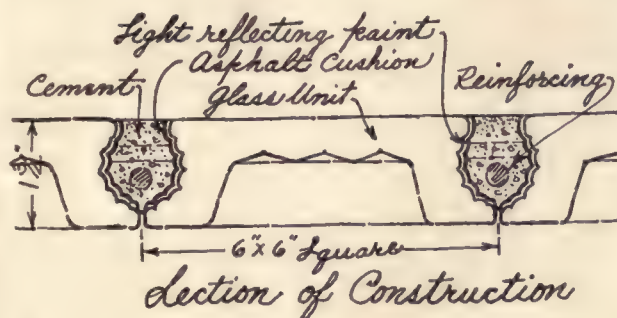 Light reflecting paint
Asphalt Cushion
Cement
Glass Unit
Reinforcing
6"x6" Square
Section of Construction